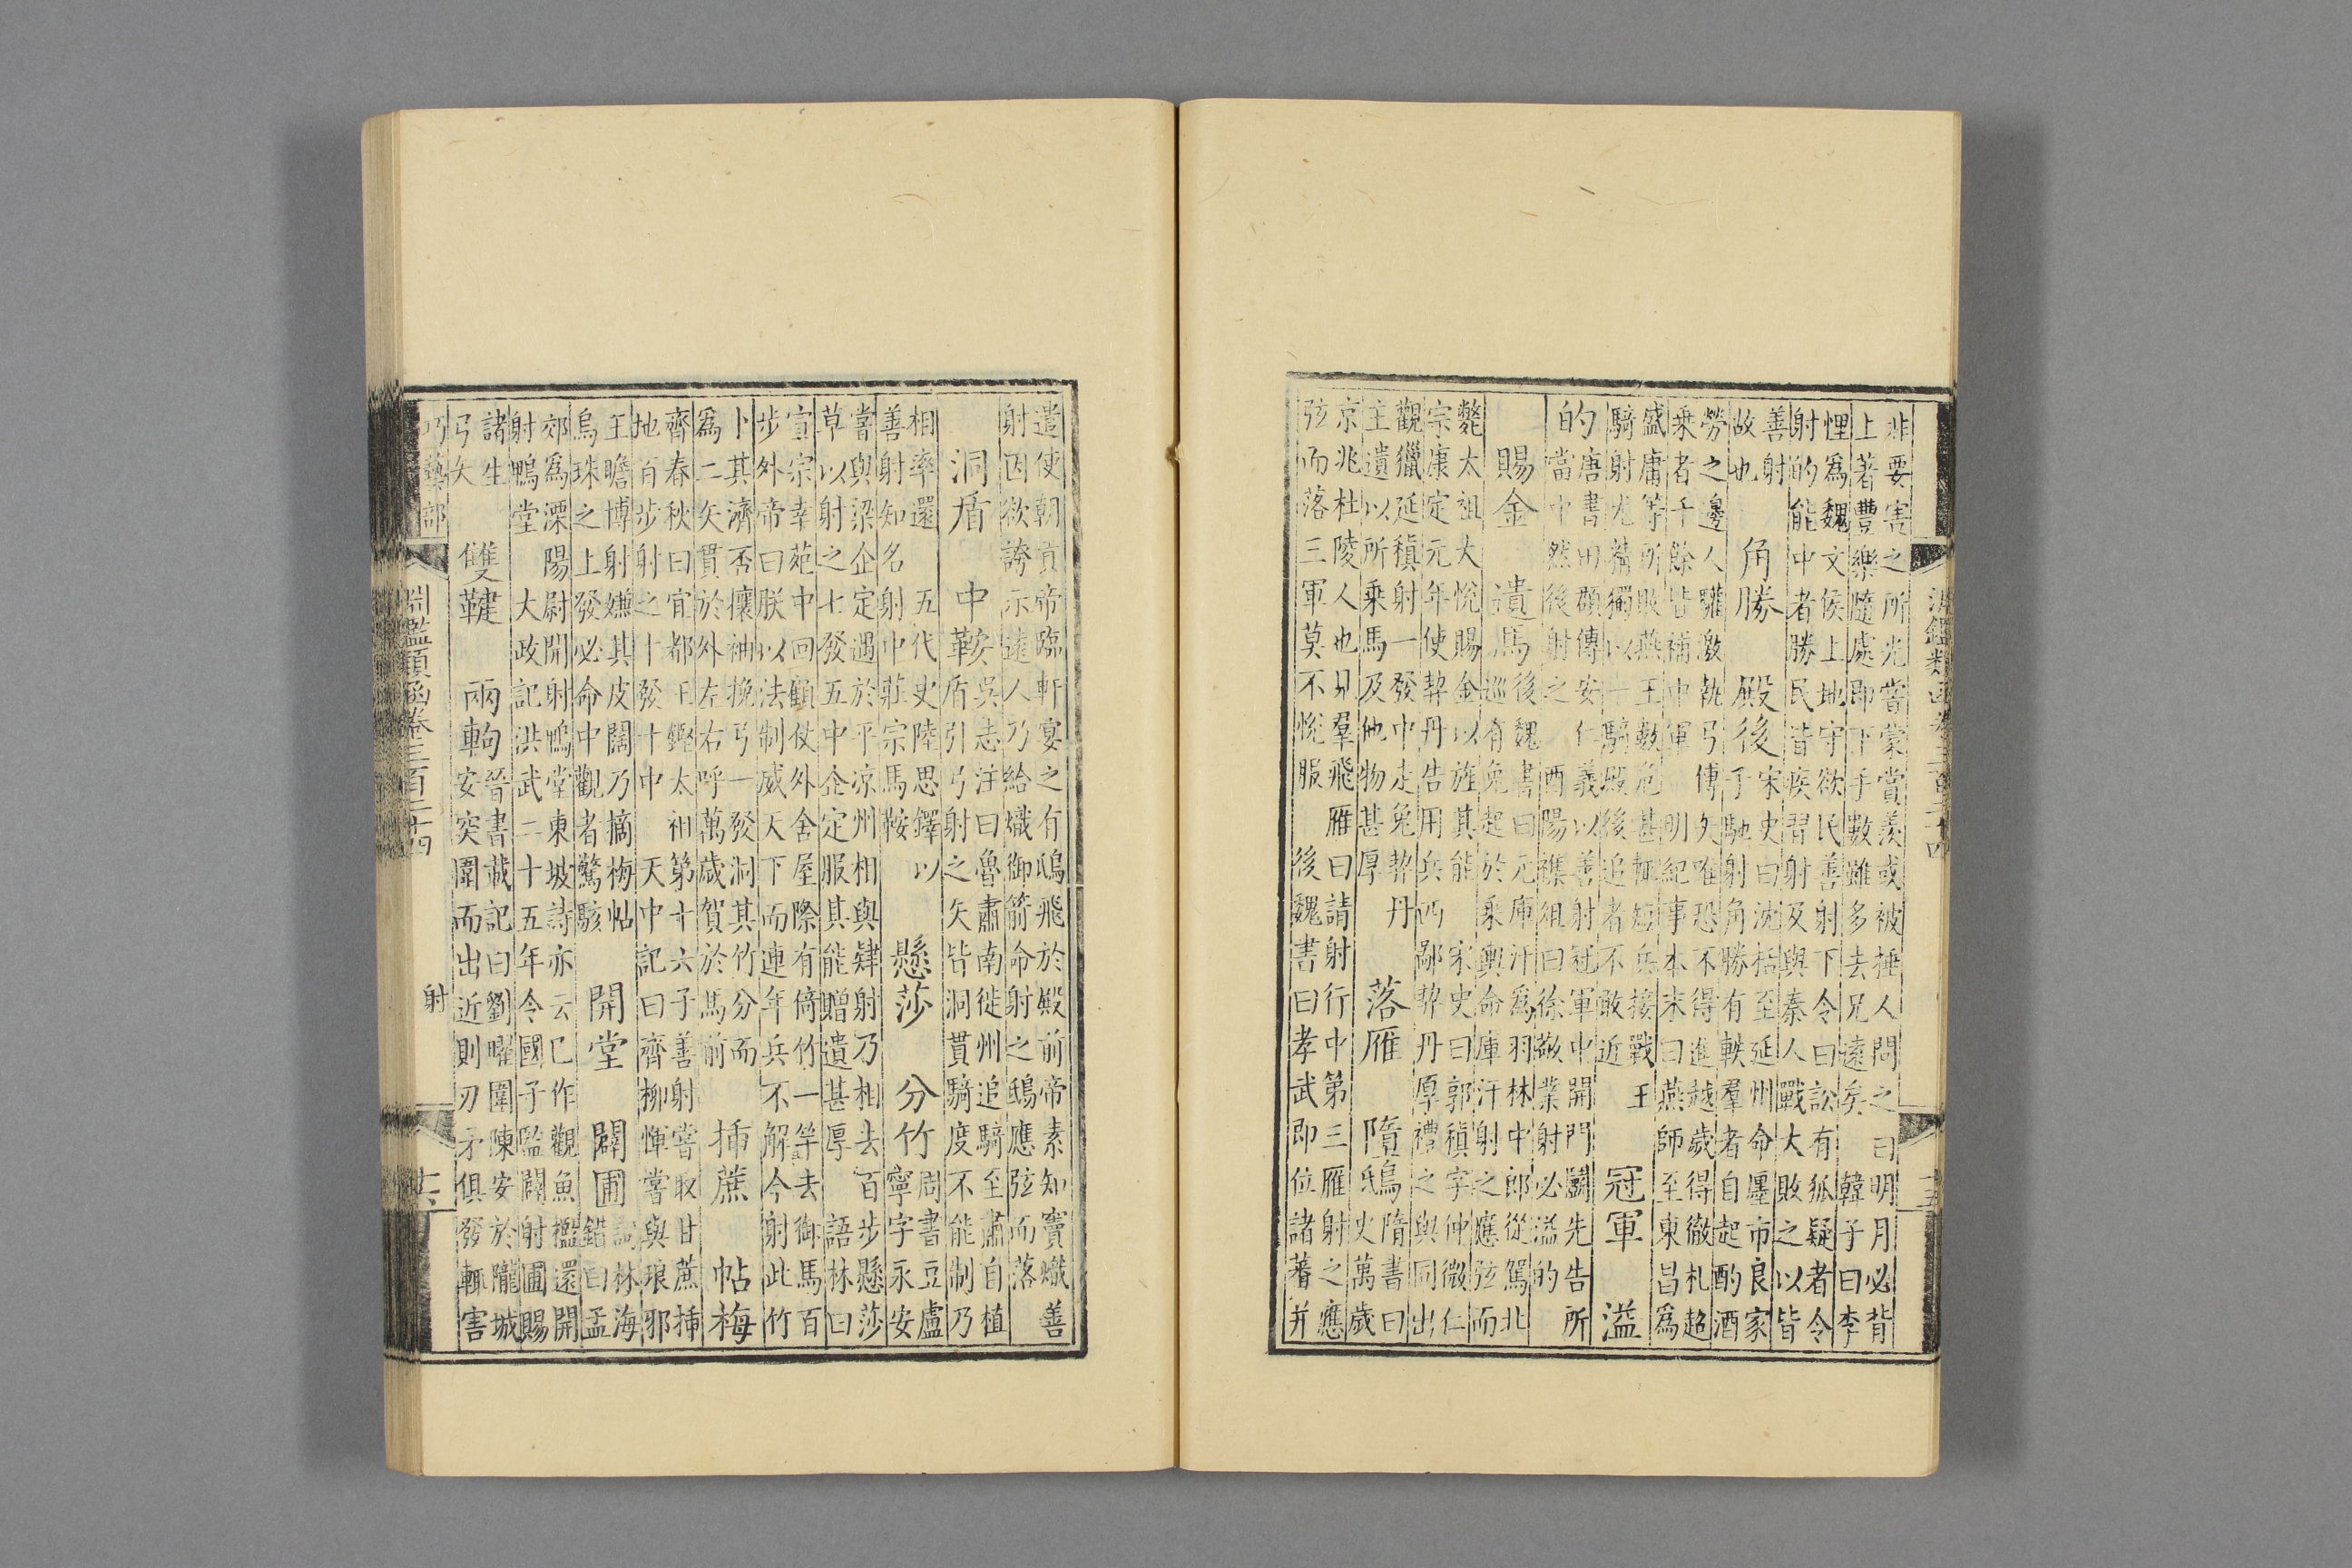 淵鑑類函卷三百二十四 十五
非要害之所光當蒙賞羨或被捶人問之曰明月必背
上著豐樂隨處即下手數雖多去兄遠矣 韓子曰李
悝為魏文侯上地守欲民善射下令曰訟有狐疑者令
射的能中者勝民皆疾習射及與秦人戰大敗之以皆
善射
故也 角勝 殿後 宋史曰沈括至延州命廛市良家
子馳射角勝有軼羣者自起酌酒
勞之邊人驩激執弓傅矢唯恐不得進越歲得徹札超
乘者千餘皆補中軍 明紀事本末曰燕師至東昌為
盛庸等所敗燕王數危甚輒短兵接戰王
騎射尤精獨以一騎殿後追者不敢近 冠軍 溢
的 唐書田頵傳安仁義以善射冠軍中開門鬭先告所
當中然後射之 酉陽雜俎曰徐敬業射必溢的
賜金 遺馬 後魏書曰元庫汗為羽林中郎從駕北
巡有兔起於乘輿命庫汗射之應弦而
斃太祖大悅賜金以旌其能 宋史曰郭稹字仲微仁
宗康定元年使契丹告用兵西鄙契丹厚禮之與同出
觀獵延稹射一發中走兔契丹
主遺以所乘馬及他物甚厚 落雁 隋鴟 隋書曰
史萬歲
京兆杜陵人也見羣飛雁曰請射行中第三雁射之應
弦而落三軍莫不悅服 後魏書曰孝武即位諸蕃并
遣使朝貢帝臨軒宴之有鴟飛於殿前帝素知竇熾善
射因欲誇示遠人乃給熾御箭命射之鴟應弦而落
洞盾 中鞍 吳志注曰魯肅南徙州追騎至肅自植
盾引弓射之矢皆洞貫騎度不能制乃
相率還 五代史陸思鐸以
善射知名射中莊宗馬鞍 懸莎 分竹 周書豆盧
寧字永安
嘗與梁企定遇於平凉州相與肄射乃相去百步懸莎
草以射之七發五中企定服其能贈遺甚厚 語林曰
宣宗幸苑中回顧仗外舍屋際有倚竹一竿去御馬百
步外帝曰朕以法制威天下而連年兵不解今射此竹
卜其濟否攘袖挽弓一發洞其竹分而
為二矢貫於外左右呼萬歲賀於馬前 插蔗 帖梅
齊春秋曰宜都王鏗太祖第十六子善射嘗取甘蔗插
地百步射之十發十中 天中記曰齊柳惲嘗與琅邪
王瞻博射嫌其皮闊乃摘梅帖
烏珠之上發必命中觀者驚駭 開堂 闢圃 説林海
錯曰孟
郊為溧陽尉開射鴨堂東坡詩亦云已作觀魚檻還開
射鴨堂 大政記洪武二十五年令國子監闢射圃賜
諸生
弓矢 雙鞬 兩軥 晉書載記曰劉曜圍陳安於隴城
安突圍而出近則刃矛俱發輒害
巧藝部 淵鑑類函卷三百二十四 射 十六